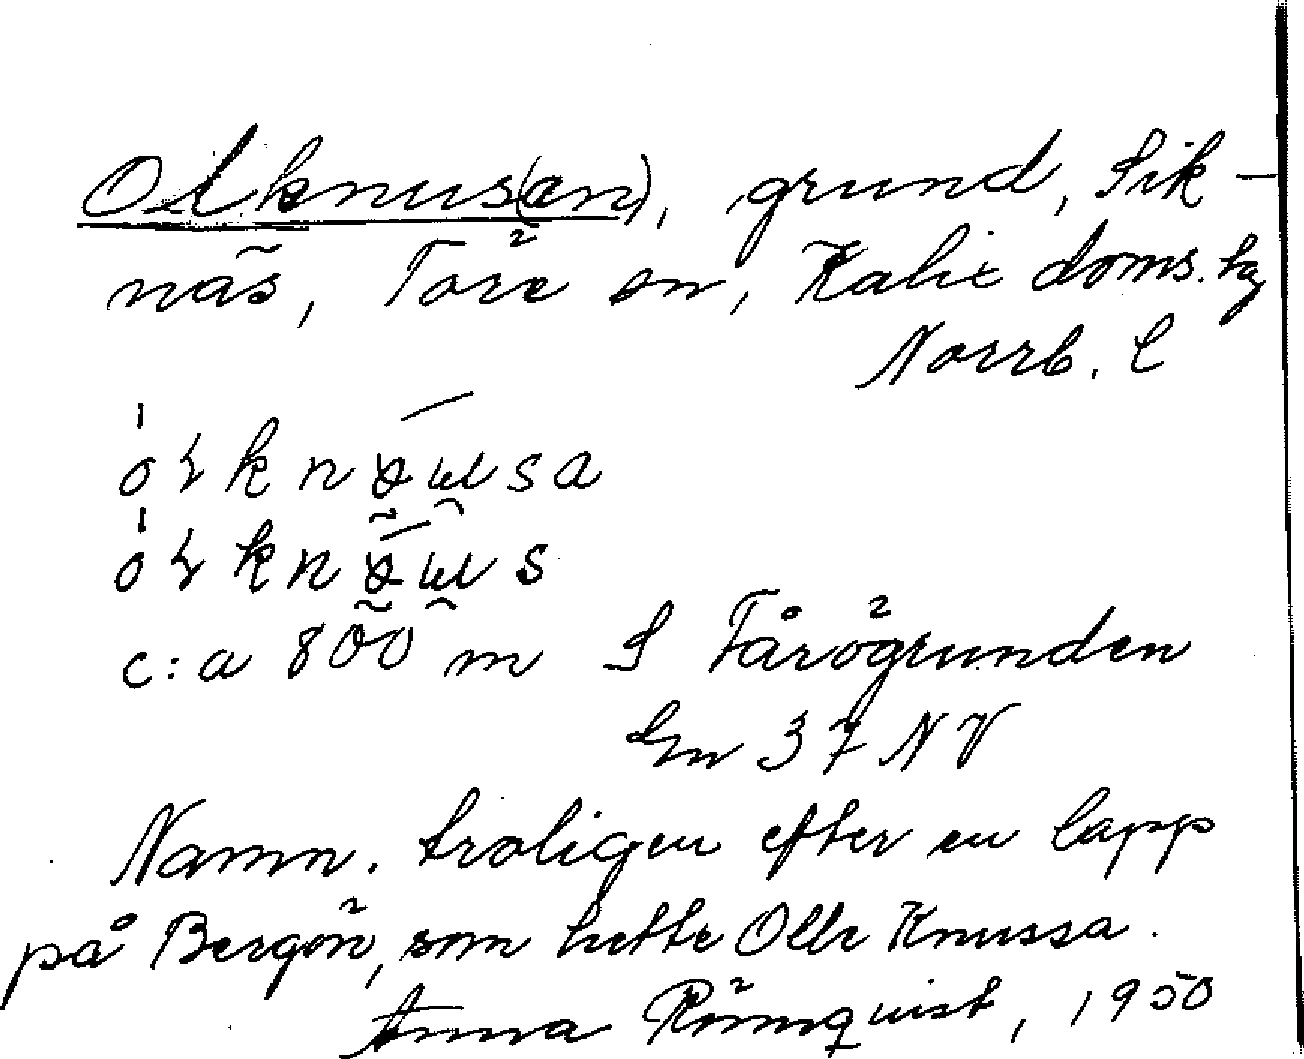 Olknus(en), grund, Sik-
näs, Töre sn, Kalix doms. hg
Norrb. l
c:a 800 m S Fårögrunden
En 37 NV
Namn. troligen efter en lapp
på Bergön, som hette Olle Knussa.
Anna Römquist, 1950